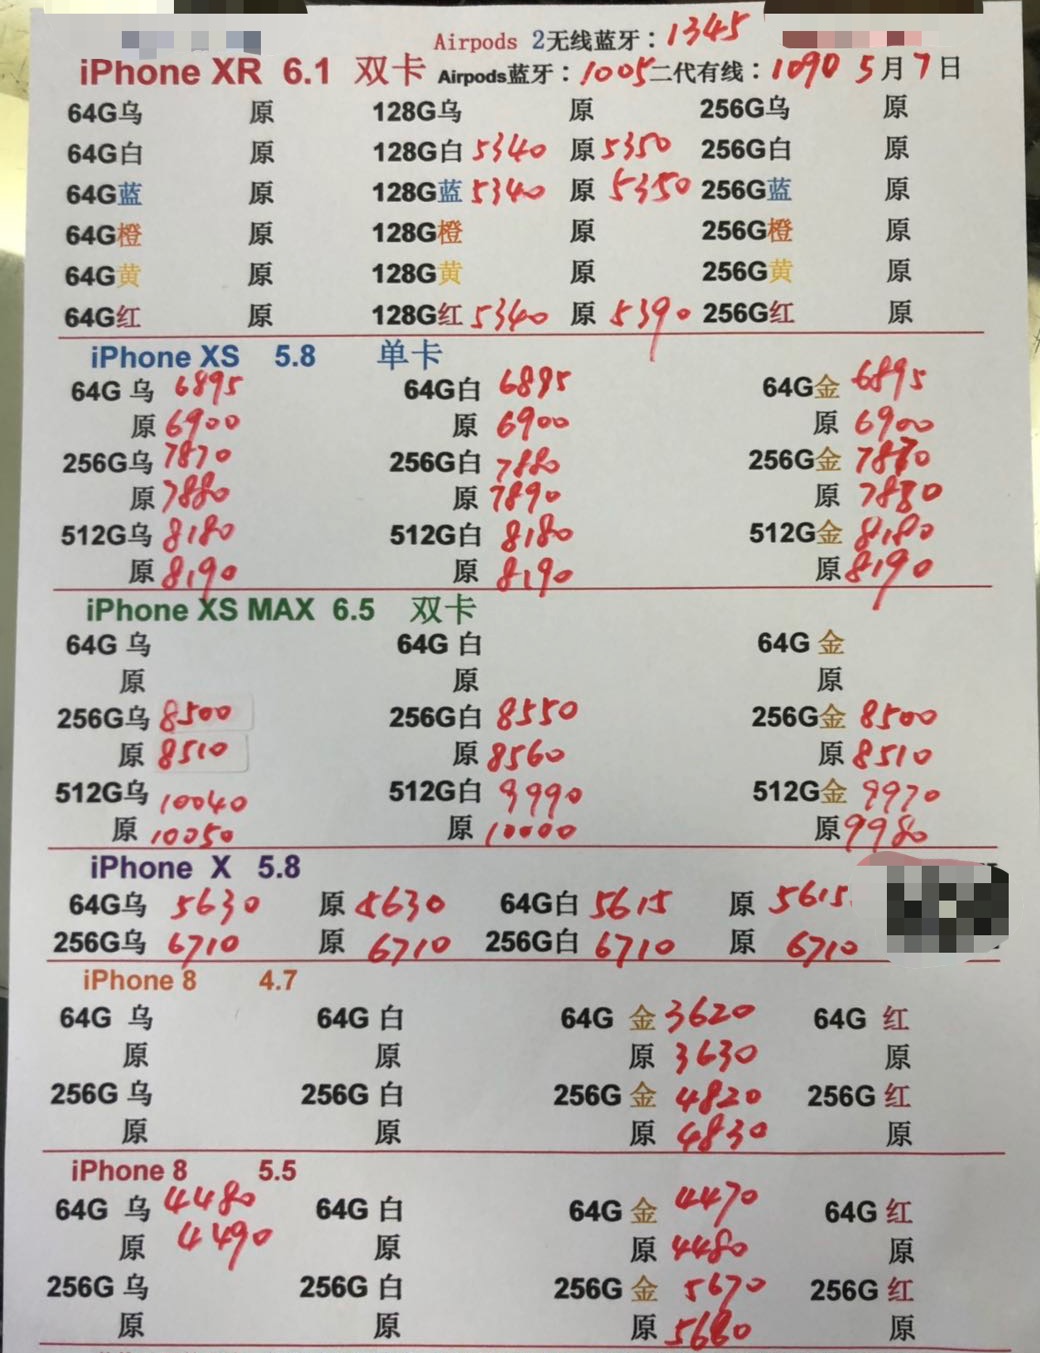 Airpods 2无线蓝牙：1345
iPhone XR 6.1 双卡 Airpods蓝牙：1005 二代有线：1090 5月7日
64G乌 原 128G乌 原 256G乌 原
64G白 原 128G白 5340 原 5350 256G白 原
64G蓝 原 128G蓝 5340 原 5350 256G蓝 原
64G橙 原 128G橙 原 256G橙 原
64G黄 原 128G黄 原 256G黄 原
64G红 原 128G红 5340 原 5390 256G红 原
iPhone XS 5.8 单卡
64G 乌 6895 64G白 6895 64G金 6895
原 6900 原 6900 原 6900
256G乌 7870 256G白 7880 256G金 7870
原 7880 原 7890 原 7880
512G乌 8180 512G白 8180 512G金 8180
原 8190 原 8190 原 8190
iPhone XS MAX 6.5 双卡
64G 乌 64G 白 64G 金
原 原 原
256G乌 8500 256G白 8550 256G金 8500
原 8510 原 8560 原 8510
512G乌 10040 512G白 9990 512G金 9970
原 10050 原 10000 原 9980
iPhone X 5.8
64G乌 5630 原 5630 64G白 5615 原 5615
256G乌 6710 原 6710 256G白 6710 原 6710
iPhone 8 4.7
64G 乌 64G 白 64G 金 3620 64G 红
原 原 原 3630 原
256G 乌 256G 白 256G 金 4820 256G 红
原 原 原 4830 原
iPhone 8 5.5
64G 乌 4480 64G 白 64G 金 4470 64G 红
原 4490 原 原 4480 原
256G 乌 256G 白 256G 金 5670 256G 红
原 原 原 5680 原